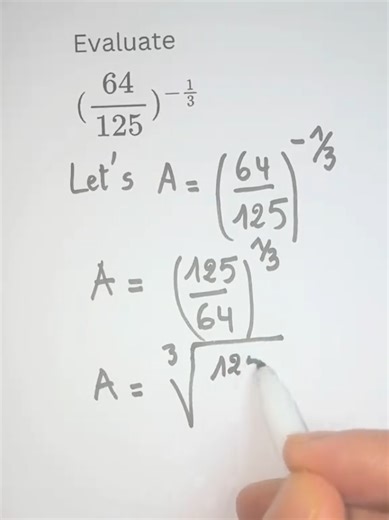 Evaluate
(64/125)^-1/3
Let's A = (64/125)^-1/3
A = (125/64)^1/3
A = ³√12